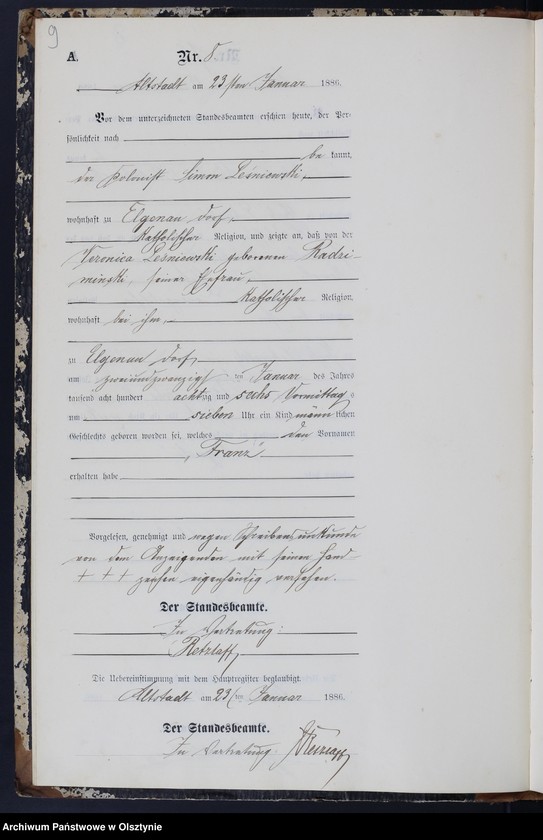 9
A.
Nr. 8.
Altstadt am 23sten Januar 1886.
Vor dem unterzeichneten Standesbeamten erschien heute, der Per-
sönlichkeit nach
be kannt,
der Kolonist Simon Leśniewski,
wohnhaft zu Elgenau Dorf,
Katholischer Religion, und zeigte an, daß von der
Veronica Leśniewski geborenen Radzi-
minski, seiner Ehefrau,
Katholischer Religion,
wohnhaft bei ihm,
zu Elgenau Dorf,
am zweiundzwanzigs ten Januar des Jahres
tausend acht hundert achtzig und sechs Vormittags
um sieben Uhr ein Kind männ lichen
Geschlechts geboren worden sei, welches den Vornamen
„Franz"
erhalten habe
Vorgelesen, genehmigt und wegen Schreibensunkunde
von dem Anzeigenden mit seinen Hand-
+ + + zeichen eigenhändig versehen.
Der Standesbeamte.
In Vertretung:
Retzlaff,
Die Uebereinstimmung mit dem Hauptregister beglaubigt.
Altstadt am 23ten Januar 1886.
Der Standesbeamte.
In Vertretung: Retzlaff
Archiwum Państwowe w Olsztynie